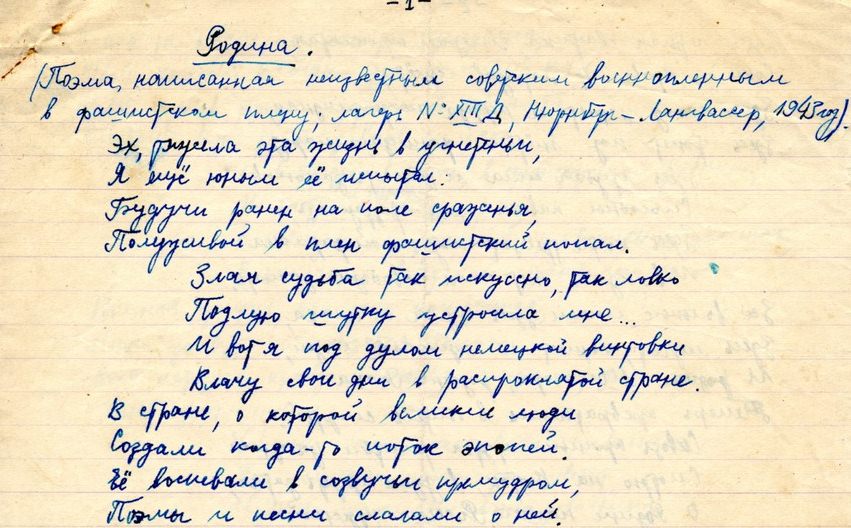 -1-
Родина.
(Поэма, написанная неизвестным советским военнопленным
в фашистском плену; лагерь № XIII Д, Нюрнберг-Лангвассер, 1943 год).
Эх, тяжела эта жизнь в угнетеньи,
Я ещё юным её испытал:
Будучи ранен на поле сраженья,
Полуживой в плен фашистский попал.
Злая судьба так искусно, так ловко
Подлую шутку устроила мне...
И вот я под дулом немецкой винтовки
Влачу свои дни в распроклятой стране.
В стране, о которой великие люди
Создали когда-то поток эпопей.
Её воспевали в созвучьи премудром,
Поэмы и песни слагали о ней.